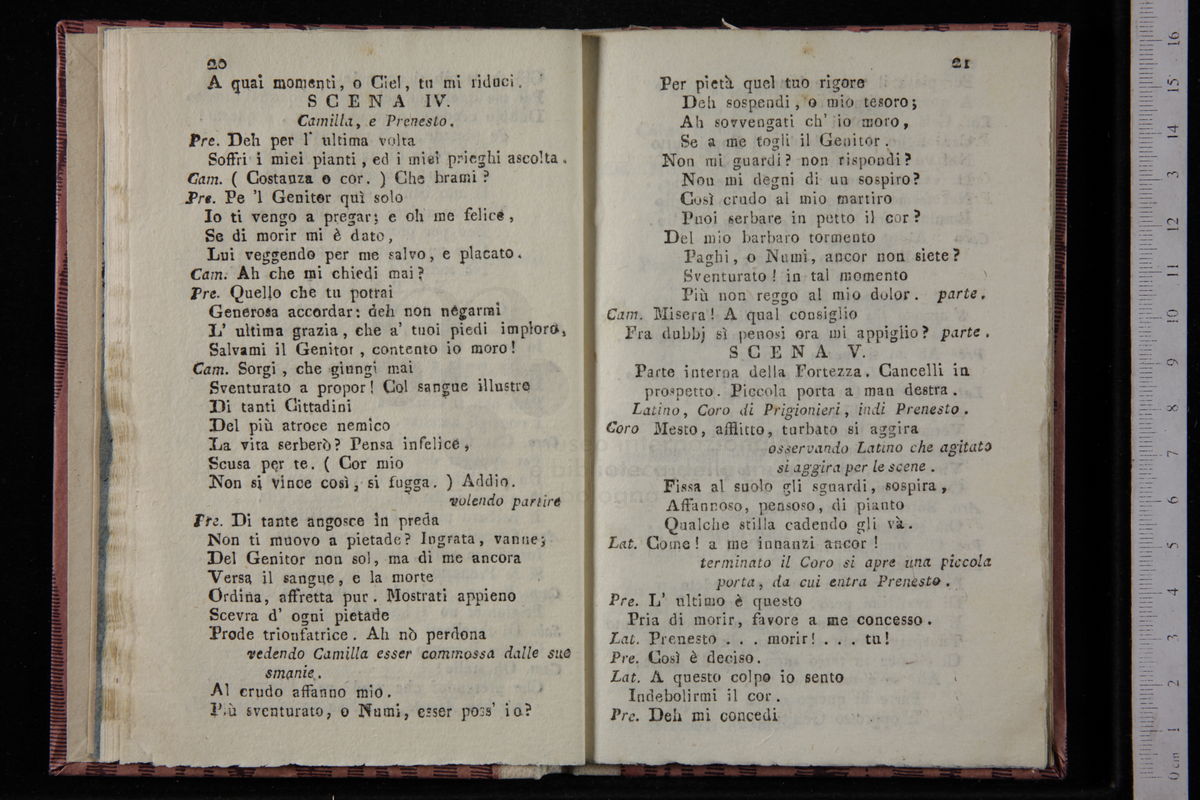 20
A quai momenti, o Ciel, tu mi riduci.
SCENA IV.
Camilla, e Prenesto.
Pre. Deh per l' ultima volta
Soffri i miei pianti, ed i miei prieghi ascolta.
Cam. ( Costanza o cor. ) Che brami?
Pre. Pe 'l Genitor quì solo
Io ti vengo a pregar; e oh me felice,
Se di morir mi è dato,
Lui veggendo per me salvo, e placato.
Cam. Ah che mi chiedi mai?
Pre. Quello che tu potrai
Generosa accordar: deh non negarmi
L' ultima grazia, che a' tuoi piedi imploro,
Salvami il Genitor, contento io moro!
Cam. Sorgi, che giungi mai
Sventurato a propor! Col sangue illustre
Di tanti Cittadini
Del più atroce nemico
La vita serberò? Pensa infelice,
Scusa per te. ( Cor mio
Non si vince così, si fugga. ) Addio.
volendo partire
Pre. Di tante angosce in preda
Non ti muovo a pietade? Ingrata, vanne;
Del Genitor non sol, ma di me ancora
Versa il sangue, e la morte
Ordina, affretta pur. Mostrati appieno
Scevra d' ogni pietade
Prode trionfatrice. Ah nò perdona
vedendo Camilla esser commossa dalle sue
smanie.
Al crudo affanno mio.
Più sventurato, o Numi, esser poss' io?
21
Per pietà quel tuo rigore
Deh sospendi, o mio tesoro;
Ah sovvengati ch' io moro,
Se a me togli il Genitor.
Non mi guardi? non rispondi?
Non mi degni di un sospiro?
Così crudo al mio martiro
Puoi serbare in petto il cor?
Del mio barbaro tormento
Paghi, o Numi, ancor non siete?
Sventurato! in tal momento
Più non reggo al mio dolor. parte.
Cam. Misera! A qual consiglio
Fra dubbj sì penosi ora mi appiglio? parte.
SCENA V.
Parte interna della Fortezza. Cancelli in
prospetto. Piccola porta a man destra.
Latino, Coro di Prigionieri, indi Prenesto.
Coro Mesto, afflitto, turbato si aggira
osservando Latino che agitato
si aggira per le scene.
Fissa al suolo gli sguardi, sospira,
Affannoso, pensoso, di pianto
Qualche stilla cadendo gli và.
Lat. Come! a me innanzi ancor!
terminato il Coro si apre una piccola
porta, da cui entra Prenesto.
Pre. L' ultimo è questo
Pria di morir, favore a me concesso.
Lat. Prenesto . . . morir! . . . tu!
Pre. Così è deciso.
Lat. A questo colpo io sento
Indebolirmi il cor.
Pre. Deh mi concedi